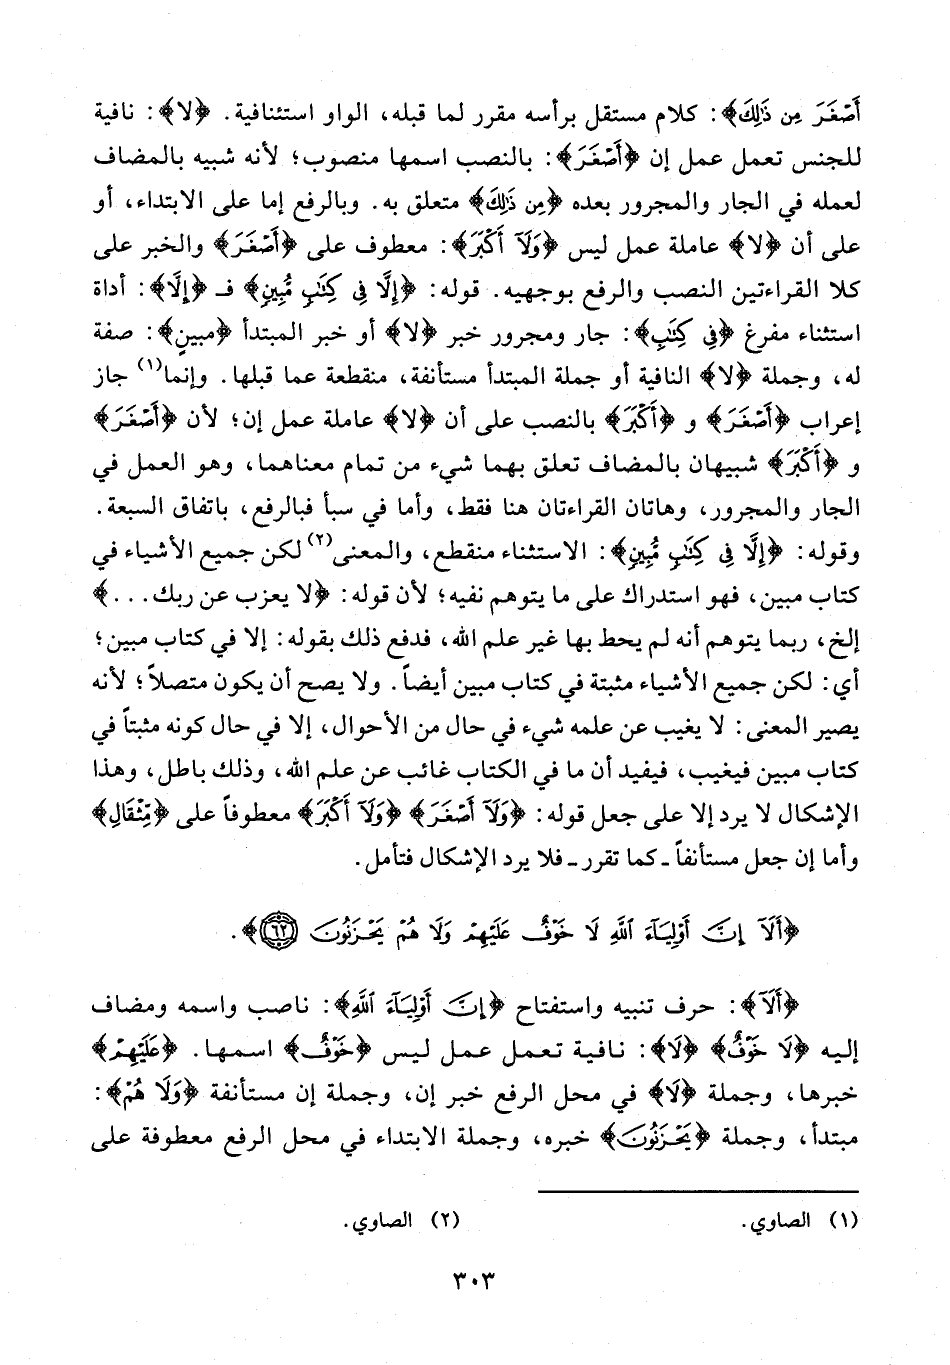 أَصْغَرَ مِن ذَٰلِكَ﴾: كلام مستقل برأسه مقرر لما قبله، الواو استئنافية. ﴿لا﴾: نافية
للجنس تعمل عمل إن ﴿أَصْغَرَ﴾: بالنصب اسمها منصوب؛ لأنه شبيه بالمضاف
لعمله في الجار والمجرور بعده ﴿مِن ذَٰلِكَ﴾ متعلق به. وبالرفع إما على الابتداء، أو
على أن ﴿لا﴾ عاملة عمل ليس ﴿وَلَآ أَكْبَرَ﴾: معطوف على ﴿أَصْغَرَ﴾ والخبر على
كلا القراءتين النصب والرفع بوجهيه. قوله: ﴿إِلَّا فِى كِتَٰبٍ مُّبِينٍ﴾ فـ ﴿إِلَّا﴾: أداة
استثناء مفرغ ﴿فِى كِتَٰبٍ﴾: جار ومجرور خبر ﴿لا﴾ أو خبر المبتدأ ﴿مبينٍ﴾: صفة
له، وجملة ﴿لا﴾ النافية أو جملة المبتدأ مستأنفة، منقطعة عما قبلها. وإنما(١) جاز
إعراب ﴿أَصْغَرَ﴾ و ﴿أَكْبَرَ﴾ بالنصب على أن ﴿لا﴾ عاملة عمل إن؛ لأن ﴿أَصْغَرَ﴾
و ﴿أَكْبَرَ﴾ شبيهان بالمضاف تعلق بهما شيء من تمام معناهما، وهو العمل في
الجار والمجرور، وهاتان القراءتان هنا فقط، وأما في سبأ فبالرفع، باتفاق السبعة.
وقوله: ﴿إِلَّا فِى كِتَٰبٍ مُّبِينٍ﴾: الاستثناء منقطع، والمعنى(٢) لكن جميع الأشياء في
كتاب مبين، فهو استدراك على ما يتوهم نفيه؛ لأن قوله: ﴿لا يعزب عن ربك...﴾
إلخ، ربما يتوهم أنه لم يحط بها غير علم الله، فدفع ذلك بقوله: إلا في كتاب مبين؛
أي: لكن جميع الأشياء مثبتة في كتاب مبين أيضاً. ولا يصح أن يكون متصلاً؛ لأنه
يصير المعنى: لا يغيب عن علمه شيء في حال من الأحوال، إلا في حال كونه مثبتاً في
كتاب مبين فيغيب، فيفيد أن ما في الكتاب غائب عن علم الله، وذلك باطل، وهذا
الإشكال لا يرد إلا على جعل قوله: ﴿وَلَآ أَصْغَرَ﴾ ﴿وَلَآ أَكْبَرَ﴾ معطوفاً على ﴿مِّثْقَالِ﴾
وأما إن جعل مستأنفاً ـ كما تقرر ـ فلا يرد الإشكال فتأمل.
﴿أَلَآ إِنَّ أَوْلِيَآءَ ٱللَّهِ لَا خَوْفٌ عَلَيْهِمْ وَلَا هُمْ يَحْزَنُونَ ٦٢﴾.
﴿أَلَآ﴾: حرف تنبيه واستفتاح ﴿إِنَّ أَوْلِيَآءَ ٱللَّهِ﴾: ناصب واسمه ومضاف
إليه ﴿لَا خَوْفٌ﴾ ﴿لَا﴾: نافية تعمل عمل ليس ﴿خَوْفٌ﴾ اسمها. ﴿عَلَيْهِمْ﴾
خبرها، وجملة ﴿لَا﴾ في محل الرفع خبر إن، وجملة إن مستأنفة ﴿وَلَا هُمْ﴾:
مبتدأ، وجملة ﴿يَحْزَنُونَ﴾ خبره، وجملة الابتداء في محل الرفع معطوفة على
(١) الصاوي. (٢) الصاوي.
٣٠٣